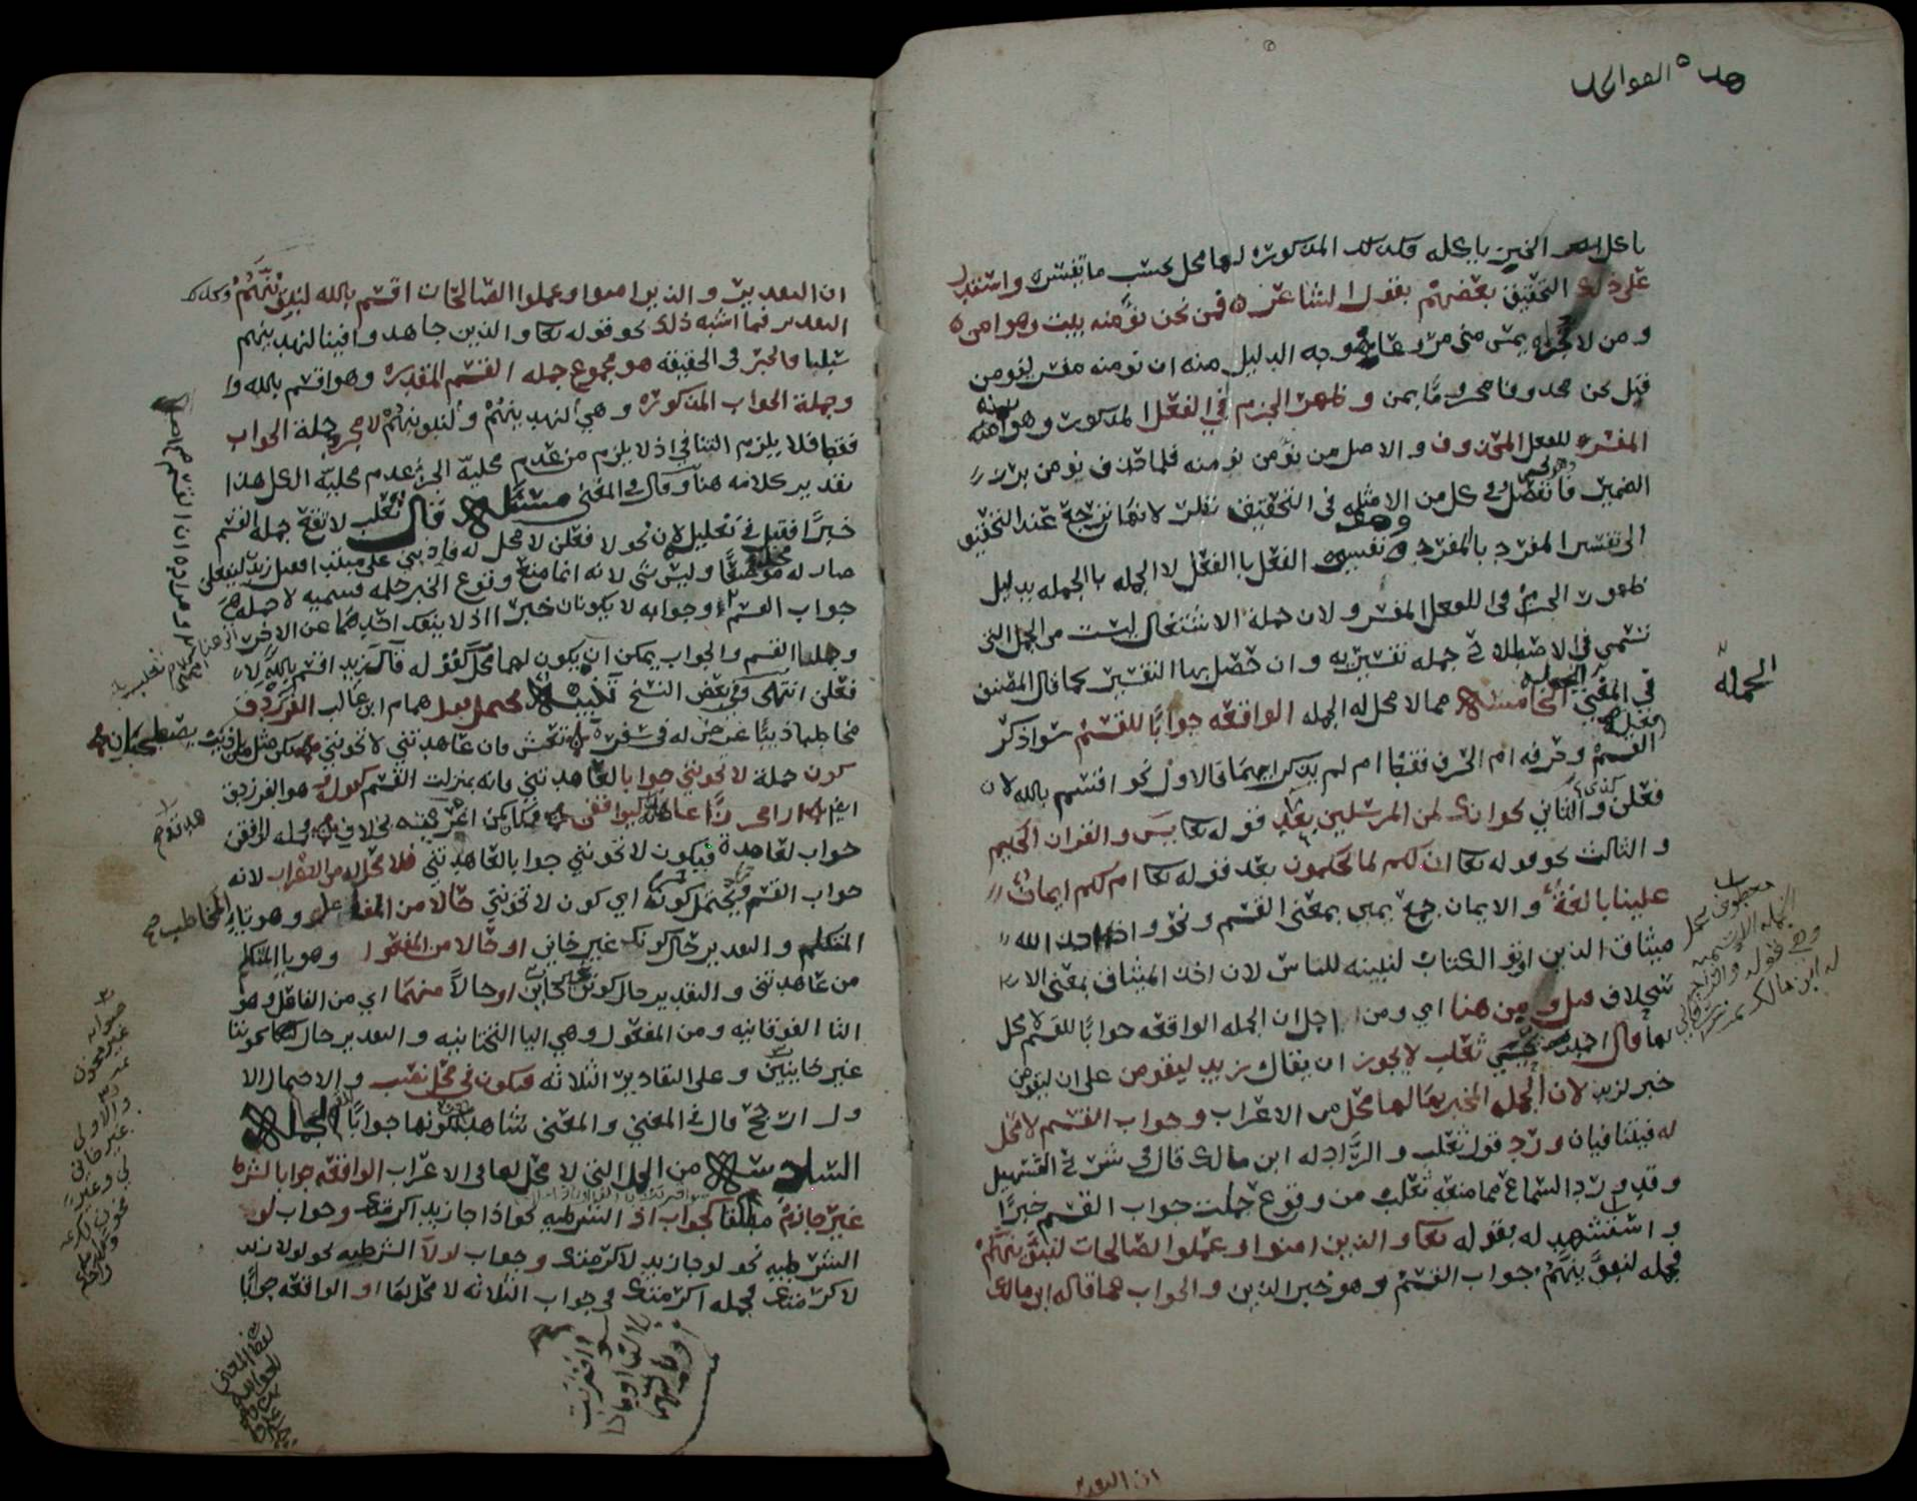 هذه الفوائد
باكل الخبز ياكله فكذلك المذكوره لها محل بحسب ما تفسره واستدل
على ذلك التحقيق بعضهم بقول الشاعر فمن نحن نؤمنه يبت وهو امن
ومن لا نجره يمس منا مروعا فوجه الدليل منه ان نومنه مفسر لنومن
قبل نحن محذوفا مجزوما بمن وظهر الجزم في الفعل المذكور وهو نومنه
المفسر للفعل المحذوف والاصل من نؤمن نومنه فلما حذف نومن برز
الضمير وانفصل وفي كل من الامثله في التحقيق نظر لانها ترجع عند التحقيق
الى تفسير المفرد بالمفرد وهو تفسير الفعل بالفعل لا الجمله بالجمله بدليل
ظهور الجزم في الفعل المفسر ولان جملة الاشتغال ليست من الجمل التي
تسمى في الاصطلاح جمله تفسيريه وان حصل بها التفسير كما قال المصنف
في المغني الجملة الخامسة مما لا محل له الجمله الواقعه جوابا للقسم سوا ذكر
فعل القسم وحرفه ام الحرف فقط ام لم يذكرا فالاول نحو اقسم بالله لا
فعلن كذى والثاني نحو انك لمن المرسلين بعد قوله تعا يس والقران الحكيم
والثالث نحو قوله تعا ان لكم لما تحكمون بعد قوله تعا ام لكم ايمان
علينا بالغة والايمان جمع يمين بمعنى القسم ونحو واذ اخذ الله
ميثاق الذين اوتو الكتاب لتبيننه للناس لان اخذ الميثاق بمعنى الا
ستحلاف قيل ومن هنا اي ومن اجل ان الجمله الواقعه جوابا للقسم لا محل
لها قال احمد بن يحيى ثعلب لا يجوز ان يقال زيد ليقومن على ان ليقومن
خبر لزيد لان الجمله المخبر بها لها محل من الاعراب وجواب القسم لا محل
له فيتنافيان ورد قول ثعلب والراد له ابن مالك قال في شرح التسهيل
وقد ورد السماع بما منعه ثعلب من وقوع جملت جواب القسم خبرا
واستشهد له بقوله تعا والذين امنوا وعملوا الصالحات لنبوئنهم
فجمله لنبوئنهم جواب القسم وهو خبر الذين والجواب عما قاله ابن مالك
الجملة
معطوف على محل
الجمله الاسميه
وهي قوله والراد
له ابن مالك
ان التقدير
ان التقدير والذين امنوا وعملوا الصالحات اقسم بالله لنبوئنهم وكذلك
التقدير فيما اشبه ذلك نحو قوله تعا والذين جاهدوا فينا لنهدينهم
سبلنا فالخبر في الحقيقة هو مجموع جمله القسم المقدره وهو اقسم بالله وا
وجملة الجواب المذكوره وهي لنهدينهم ولنبوئنهم لا مجرد جملة الجواب
فقط فلا يلزم التنافي اذ لا يلزم من عدم محلية الجزء عدم محلية الكل هذا
تقدير كلامه هنا وقال في المغني مسئلة قال ثعلب لا تقع جملة القسم
خبرا فقيل في تعليله لان نحو لا فعلن لا محل له فاذا بني على مبتدا فقيل زيد ليفعلن
صار له موضعا وليس بشى لانه انما منع وقوع الخبر جمله قسميه لا جمله هي
جواب القسم وجوابه لا يكونان خبرا اذ لا ينفك احدهما عن الاخر
وجملتا القسم والجواب يمكن ان يكون لهما محل كقوله قال زيد اقسم بالله لا
فعلن انتهى وفي بعض النسخ تنبيه يحتمل قول همام ابن غالب الفرزدق
مخاطبا ذيبا عرض له في سفره تعش فان عاهدتني لا تخونني نكن مثل من يا ذيب يصطحبان
كون جملة لا تخونني جوابا لعاهدتني فانه بمنزلت القسم
جواب لعاهدة فيكون لا تخونني جوابا لعاهدتني فلا محل له من الاعراب لانه
جواب القسم ويحتمل كونه اي كون لا تخونني حالا من الفاعل وهو تاء المخاطب
المتكلم والتقدير حال كونك غير خاين او حالا من المفعول وهو يا المتكلم
من عاهدتني والتقدير حال كوني غير خاين او حالا منهما اي من الفاعل وهو
التا الفوقانيه ومن المفعول وهي اليا التحتانيه والتقدير حال كوننا
غير خاينين وعلى التقادير الثلاثه فيكون في محل نصب والاحتمال الا
ول ارجح قال في المغني والمعنى شاهد لكونها جوابا الجملة
السادسة من الجمل التي لا محل لها في الاعراب الواقعه جوابا لشرط
غير جازم مطلقا كجواب اذا الشرطيه نحو اذا جا زيد اكرمتك وجواب لو
الشرطيه نحو لو جا زيد لاكرمتك وجواب لولا الشرطيه نحو لولا زيد
لاكرمتك فجمله اكرمتك في جواب الثلاثه لا محل لها او الواقعه جوابا